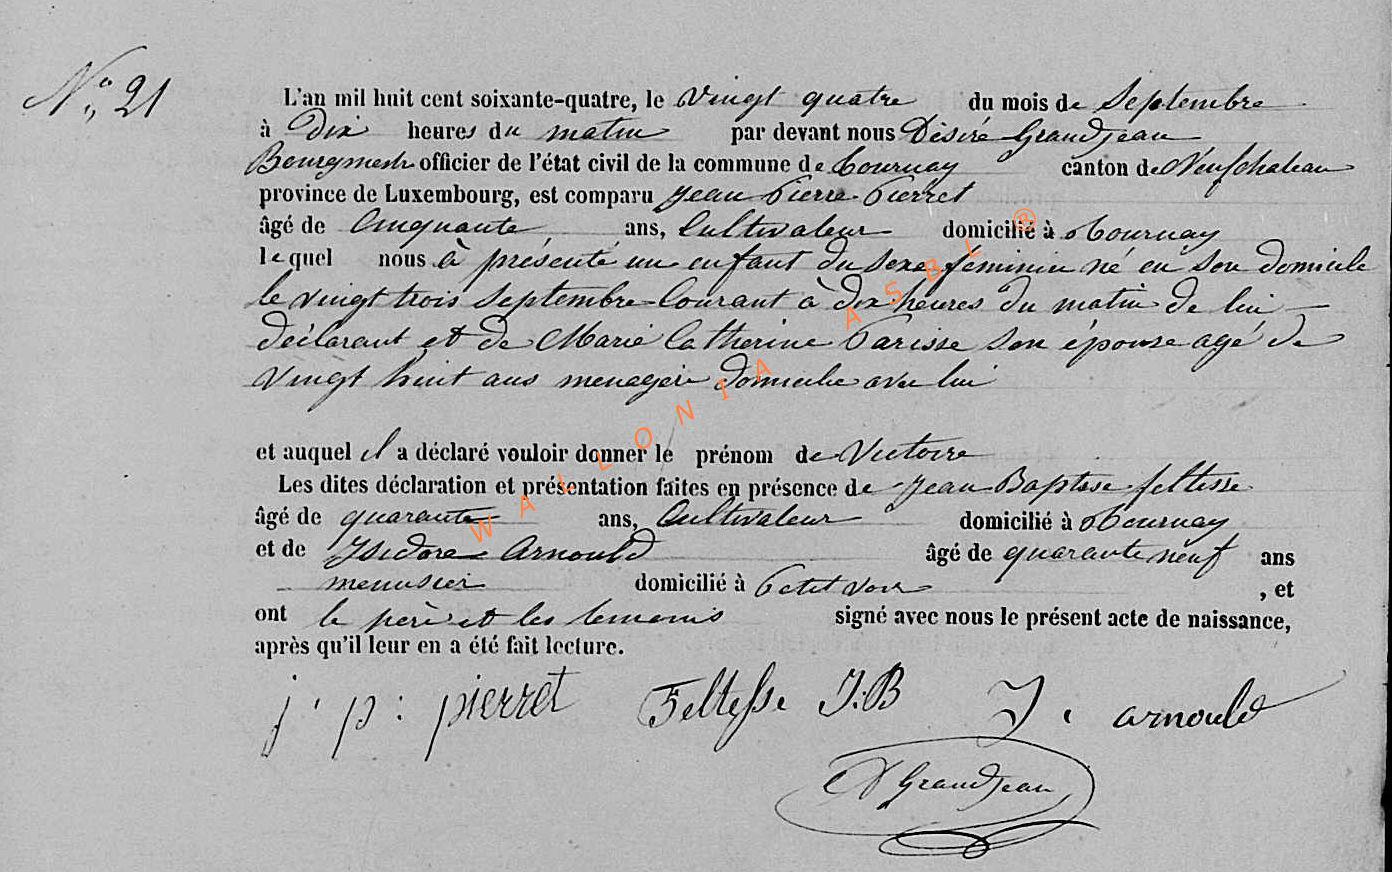 No 21
L'an mil huit cent soixante-quatre, le vingt quatre du mois de Septembre
à Dix heures du matin par devant nous Désiré Grandjean
Bourgmestre officier de l'état civil de la commune de Tournay canton de Neufchateau
province de Luxembourg, est comparu Jean Pierre Pierret
âgé de Cinquante ans, Cultivateur domicilié à Tournay
lequel nous à présenté un enfant du sexe féminin né en son domicile
le vingt trois Septembre Courant à dix heures du matin de lui
déclarant et de Marie Catherine Parisse son épouse agé de
vingt huit ans menagère domicilie avec lui
et auquel il a déclaré vouloir donner le prénom de Victoire
Les dites déclaration et présentation faites en présence de Jean Baptise feltesse
âgé de quarante ans, Cultivateur domicilié à Tournay
et de Isidore Arnould âgé de quarante neuf ans
menusier domicilié à Petit voir , et
ont le père et les temoins signé avec nous le présent acte de naissance,
après qu'il leur en a été fait lecture.
j. p. pierret Feltesse J.B J. arnould
D Grandjean
WALLONIA ASBL ®